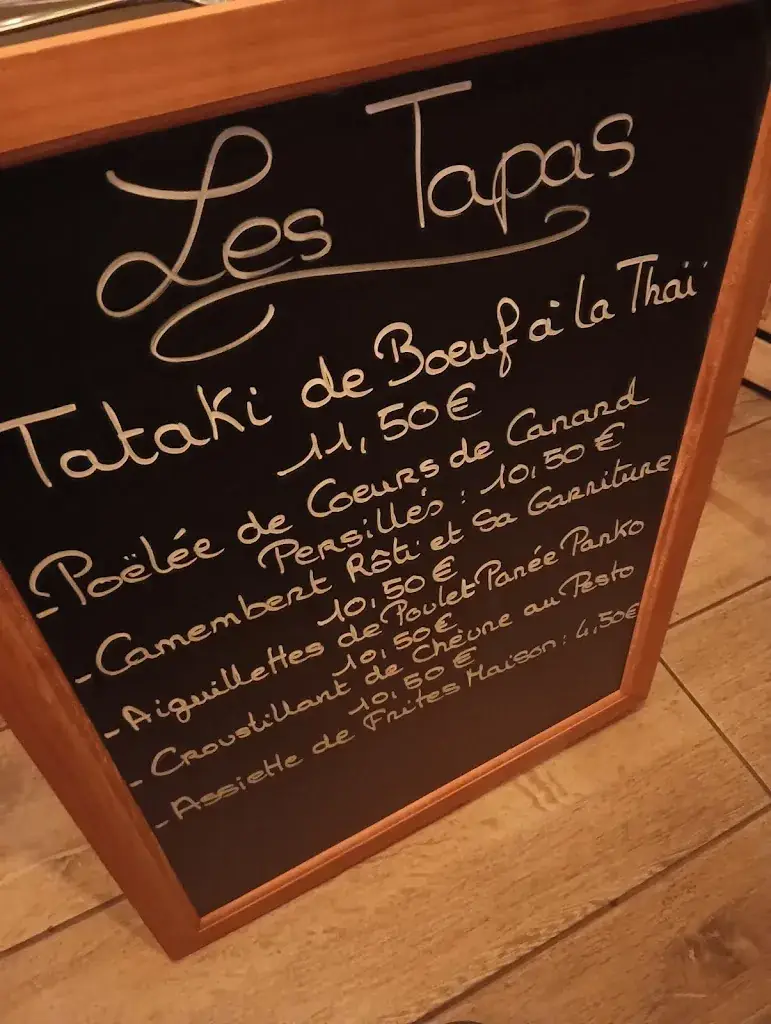 Les Tapas
Tataki de Boeuf à la Thaï
11,50€
- Poëlée de Coeurs de Canard
Persillés : 10,50 €
- Camembert Rôti et Sa Garniture
10,50 €
- Aiguillettes de Poulet Panée Panko
10,50 €
- Croustillant de Chèvre au Pesto
10,50 €
- Assiette de Frites Maison : 4,50€